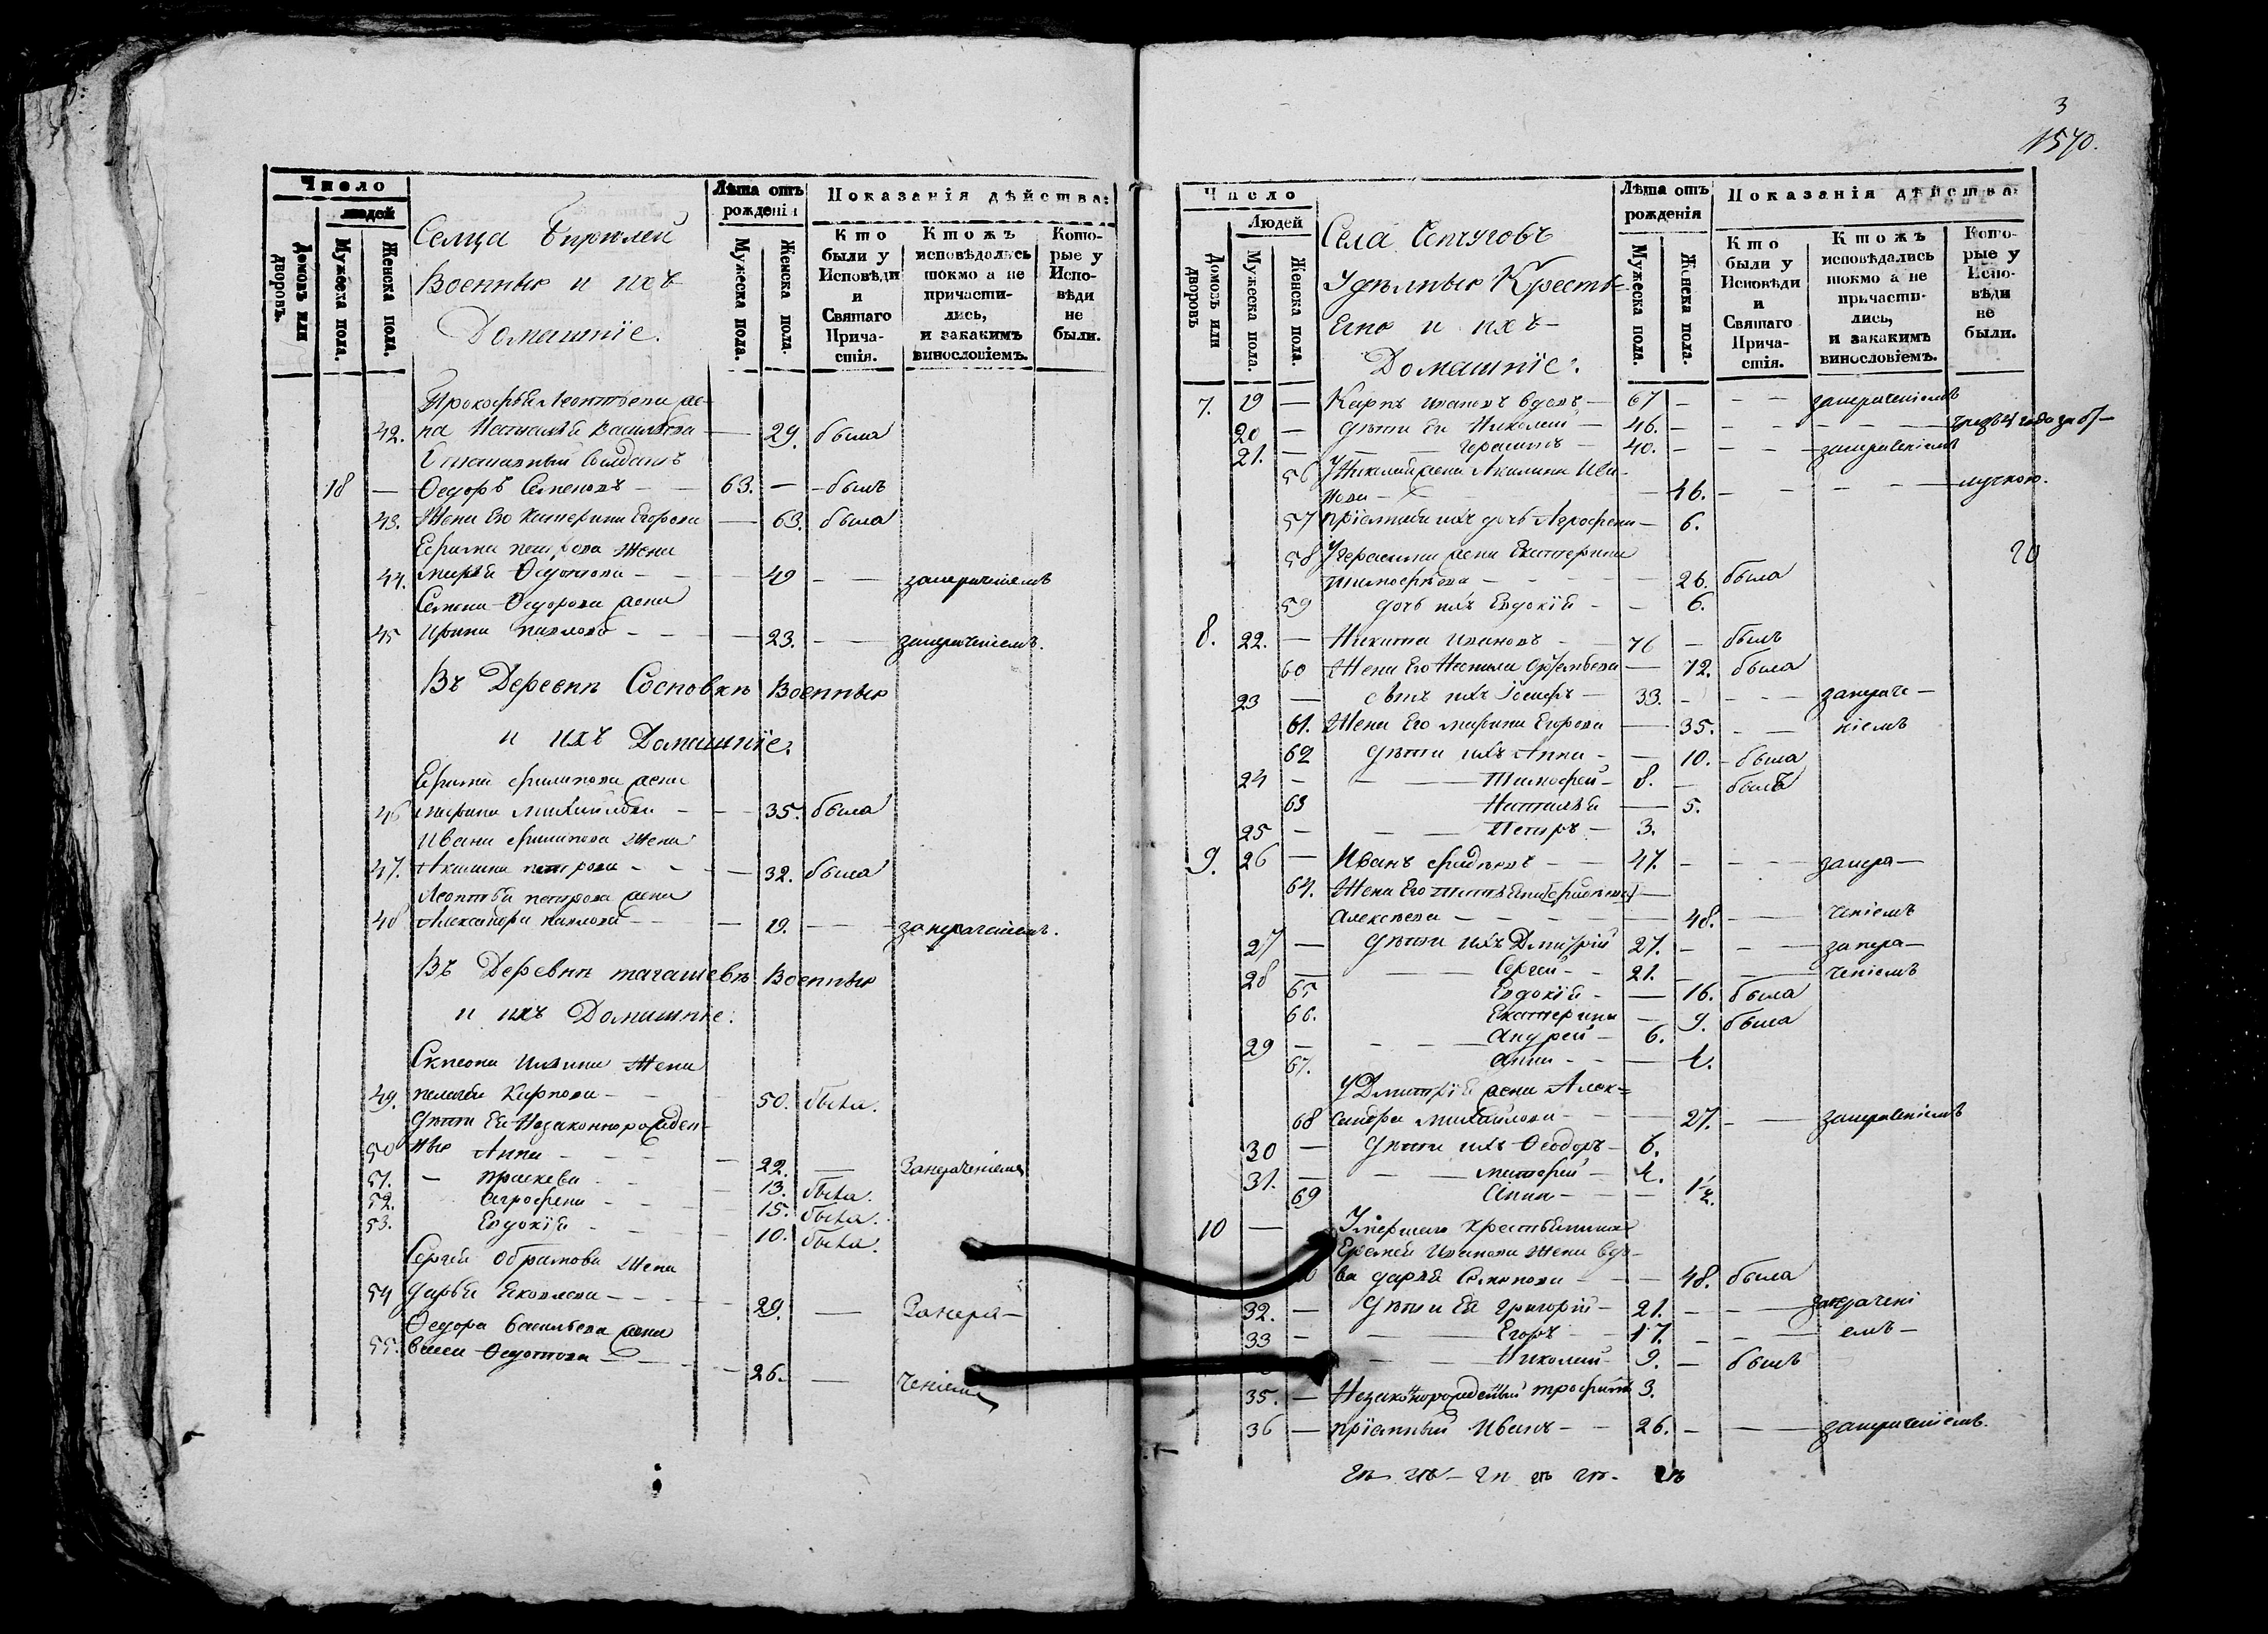 Число
людей
Домовъ или дворовъ.
Мужеска пола.
Женска пола.
Селца Бирюлей
Военныя и ихъ
Домашніе.
Лѣта отъ рожденія
Мужеска пола.
Женска пола.
Показанія дѣйства:
Кто были у Исповѣди и Святаго Прича-стія.
Ктожъ исповѣдались токмо а не причасти-лись, и закакимъ винословіемъ.
Кото-рые у Испо-вѣди не были.
Прокофья Леонтьева же-
42. на Наталья Васильева — 29. была
Отставный Солдатъ
18 — Ѳедоръ Семеновъ — 63. — былъ
43. Жена Его Катерина Егорова — 63. была
Ефима петрова Жена
44. марья Ѳедотова — 49 — — занерачѣніемъ
Семена Ѳедорова жена
45 Ирина павлова — 23. — — занераченіемъ.
Въ Деревнѣ Сосновкѣ Военныя
и ихъ Домашніе.
Ефима филипова жена
46 марина михайлова — 35. была
Ивана филипова Жена
47. Акилина петрова — 32. была
Леонтья петрова жена
48 Александра павлова — 19. — — занераченіемъ.
Въ Деревнѣ тагашевѣ Военныя
и ихъ Домашніе.
Жена
49. пелагея Карпова — 50. была.
Дѣти Ея Незаконнорожден-
50 ные Анна — 22. — Занераченіемъ
51. — праскева — 13. была.
52. Агрофена — 15. была.
53. Евдокія — 10. была.
Сергея Обрамова Жена
54 дарья Яковлева — 29. — Занера-
Ѳедора Васильева жена
55. Ѳедотова — 26. — ченіемъ
3
1570.
Число
Людей
Домовъ или дворовъ
Мужеска пола.
Женска пола.
Села
Удѣлныя Кресть=
яне и ихъ-
Домашніе.
Лѣта отъ рожденія
Мужеска пола.
Женска пола.
Показанія дѣйства:
Кто были у Исповѣди и Святаго Прича-стія.
Ктожъ исповѣдались токмо а не причасти-лись, и закакимъ винословіемъ.
Кото-рые у Испо-вѣди не были.
7. 19 — Карпъ ивановъ вдовъ — 67 — — занераченіемъ
20 — дѣти Ево Николай — 46. — —
21. — Герасимъ — 40. — — занераченіемъ
56 У Николая жена Акилина Ива-
нова — 46. — — —
57 пріемная ихъ дочь Агрофена — 6.
58 У герасима жена Екатерина
тимофѣева — 26. была
20
59 дочь ихъ Евдокія — 6.
8. 22. — Никита ивановъ — 76 — былъ
60 Жена Его — 72. была
23 — сынъ ихъ Іосифъ — 33. — — занераче-
61. Жена Его марина Егорова — 35. — ніемъ
62 дѣти ихъ Анна — 10. — была
24 — Тимофей — 8. — былъ
63 Наталья — 5.
25 — Петръ — 3.
9. 26 — Иванъ — 47. — — занера-
64. Жена Его
Алексѣева — 48. — ченіемъ
27 — дѣти ихъ Дмитрій 27. — — занера-
28 — Сергей — 21. — — ченіемъ
65 Евдокія — 16. была
66. Екатерина — 9. была
29 — Андрей — 6.
67. Анна — 4.
У Дмитрія жена Алек=
68 сандра михайлова — 27. — занераченіемъ
30 — дѣти ихъ Ѳеодоръ — 6.
31. — матфей — 4.
69 Анна — 1/2.
10 — Умершаго крестьянина
Еремея Иванова Жена вдо-
ва дарья Семенова — 48. была
32. — дѣти Ея григорій — 21. — — занерачені
33 — Егоръ — 17. — — емъ —
Николай — 9. — былъ
35. — Незаконорожденный трофимъ 3.
36 — пріемный Иванъ — 26. — — занераченіемъ.